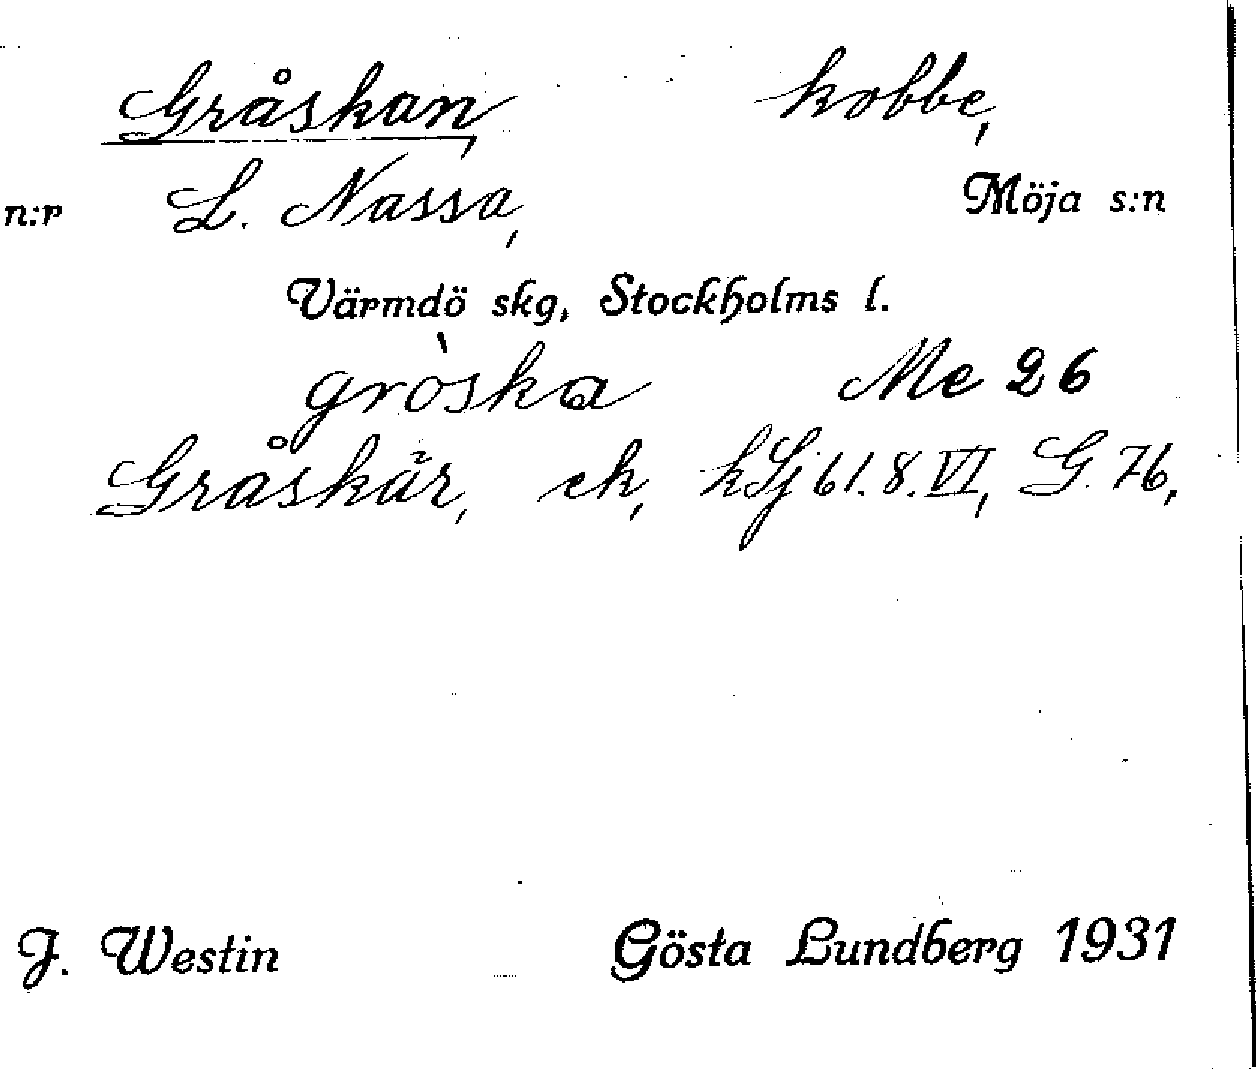 Gråskan, kobbe,
n:r L. Nassa, Möja s:n
Värmdö skg, Stockholms l.
gròska Me 26
Gråskär, ek, kSj 61.8.VI, G. 76,
J. Westin Gösta Lundberg 1931